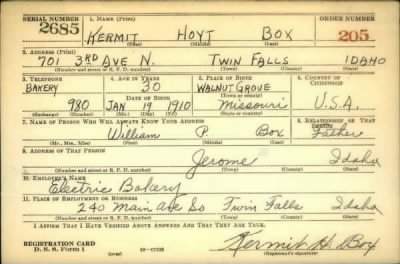 SERIAL NUMBER 1. NAME (Print) ORDER NUMBER
2685 KERMIT HOYT BOX 205
(First) (Middle) (Last)
2. ADDRESS (Print)
701 3RD AVE N. TWIN FALLS IDAHO
(Number and street or R. F. D. number) (Town) (County) (State)
3. TELEPHONE 4. AGE IN YEARS 5. PLACE OF BIRTH 6. COUNTRY OF CITIZENSHIP
BAKERY 30 WALNUT GROVE
DATE OF BIRTH (Town or county)
980 JAN 19 1910 Missouri U.S.A.
(Exchange) (Number) (Mo.) (Day) (Yr.) (State or country)
7. NAME OF PERSON WHO WILL ALWAYS KNOW YOUR ADDRESS 8. RELATIONSHIP OF THAT PERSON
William P. Box Father
(Mr., Mrs., Miss) (First) (Middle) (Last)
9. ADDRESS OF THAT PERSON
Jerome Idaho
(Number and street or R. F. D. number) (Town) (County) (State)
10. EMPLOYER'S NAME
Electric Bakery
11. PLACE OF EMPLOYMENT OR BUSINESS
240 Main Ave So Twin Falls Idaho
(Number and street or R. F. D. number) (Town) (County) (State)
I AFFIRM THAT I HAVE VERIFIED ABOVE ANSWERS AND THAT THEY ARE TRUE.
REGISTRATION CARD
D. S. S. Form 1 (over) Kermit H. Box
(Registrant's signature)